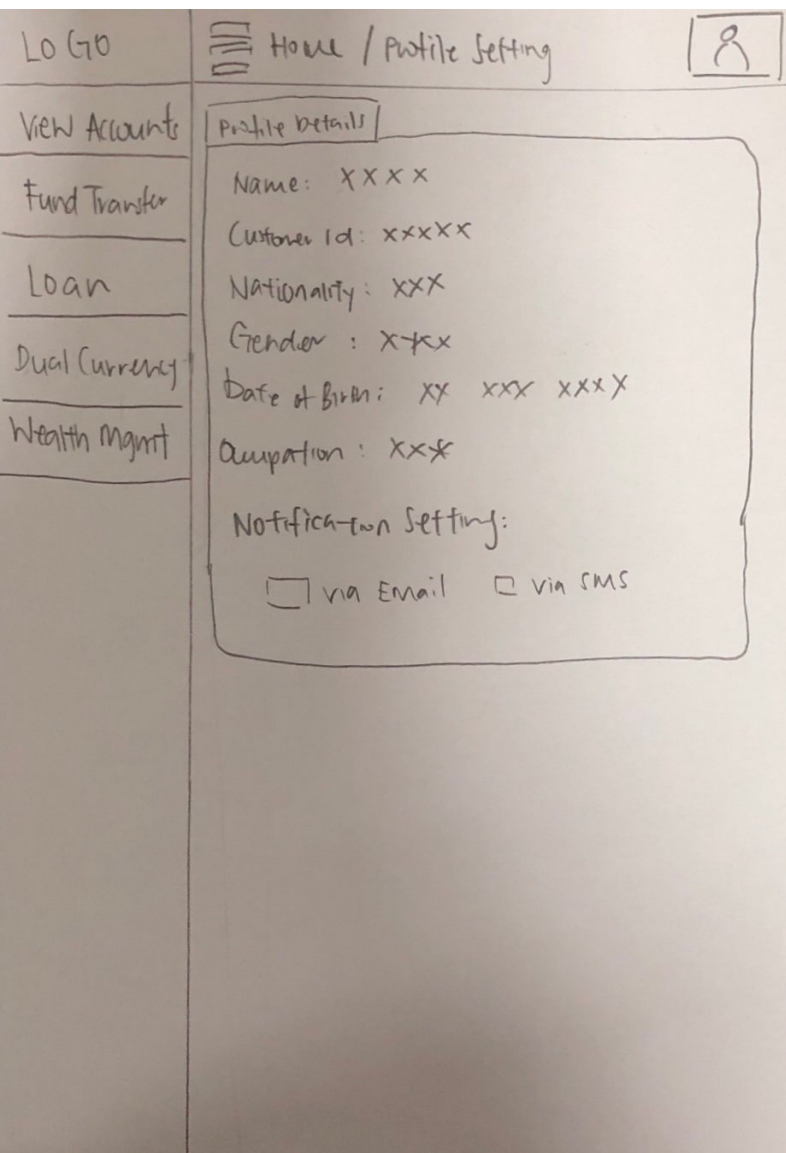 LOGO
Home / Profile Setting
View Accounts
Fund Transfer
Loan
Dual Currency
Wealth Mgmt
Profile Details
Name: XXXX
Customer Id: XXXXX
Nationality: XXX
Gender : XXX
Date of Birth: XX XXX XXXX
Occupation : XXX
Notification Setting:
via Email via SMS